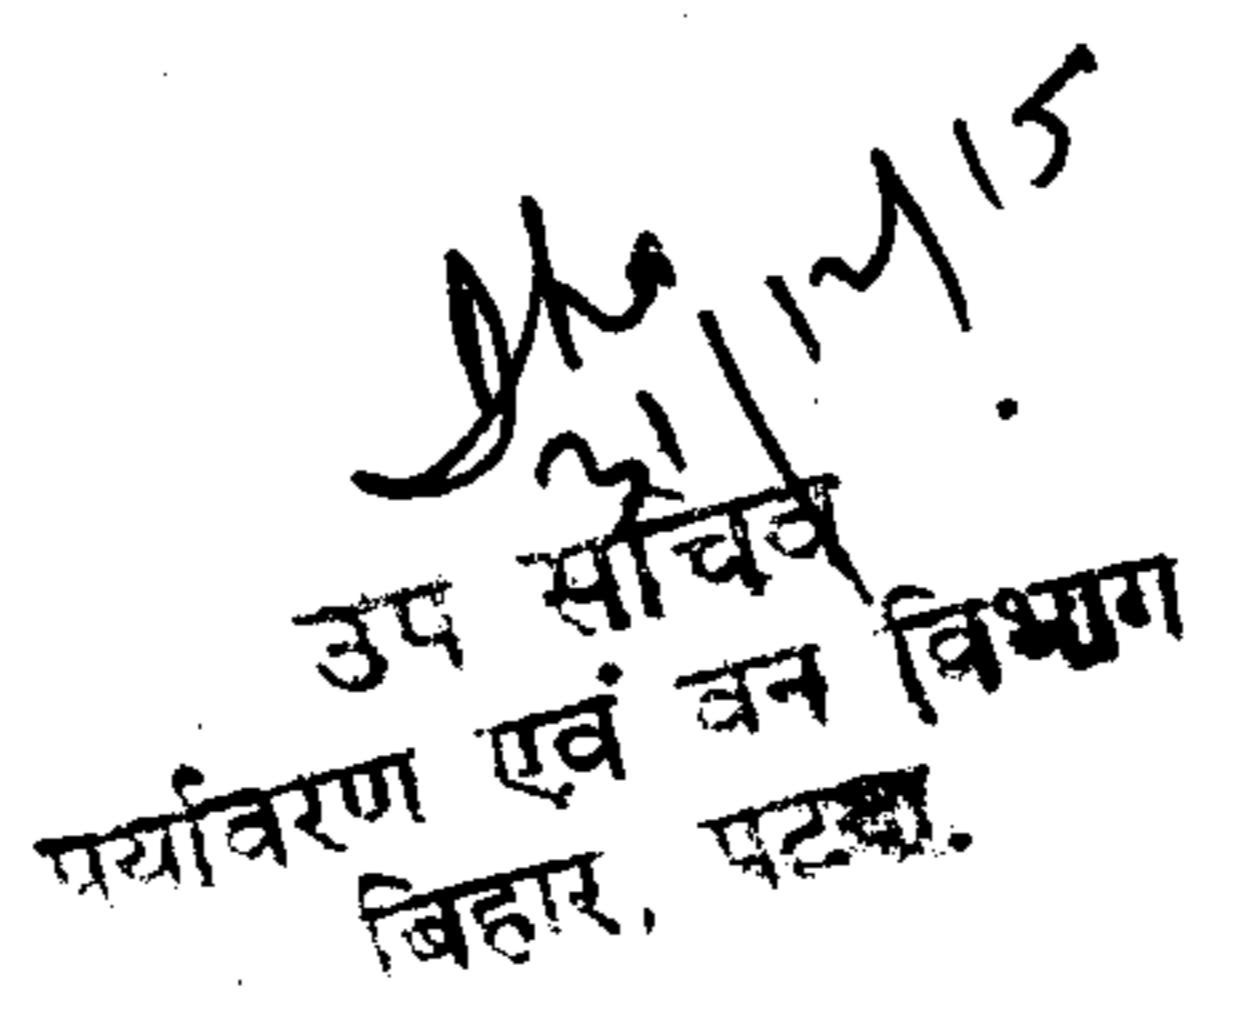 उप सचिव
पर्यावरण एवं वन विभाग
बिहार, पटना.